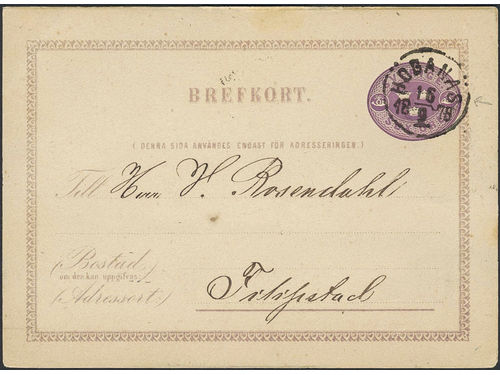 HÖGANÄS
16
18 79
BREFKORT.
( DENNA SIDA ANVÄNDES ENDAST FÖR ADRESSERINGEN.)
Till Herr N. Rosendahl
(Bostad,
om den kan uppgifvas.)
(Adressort.) Filipstad